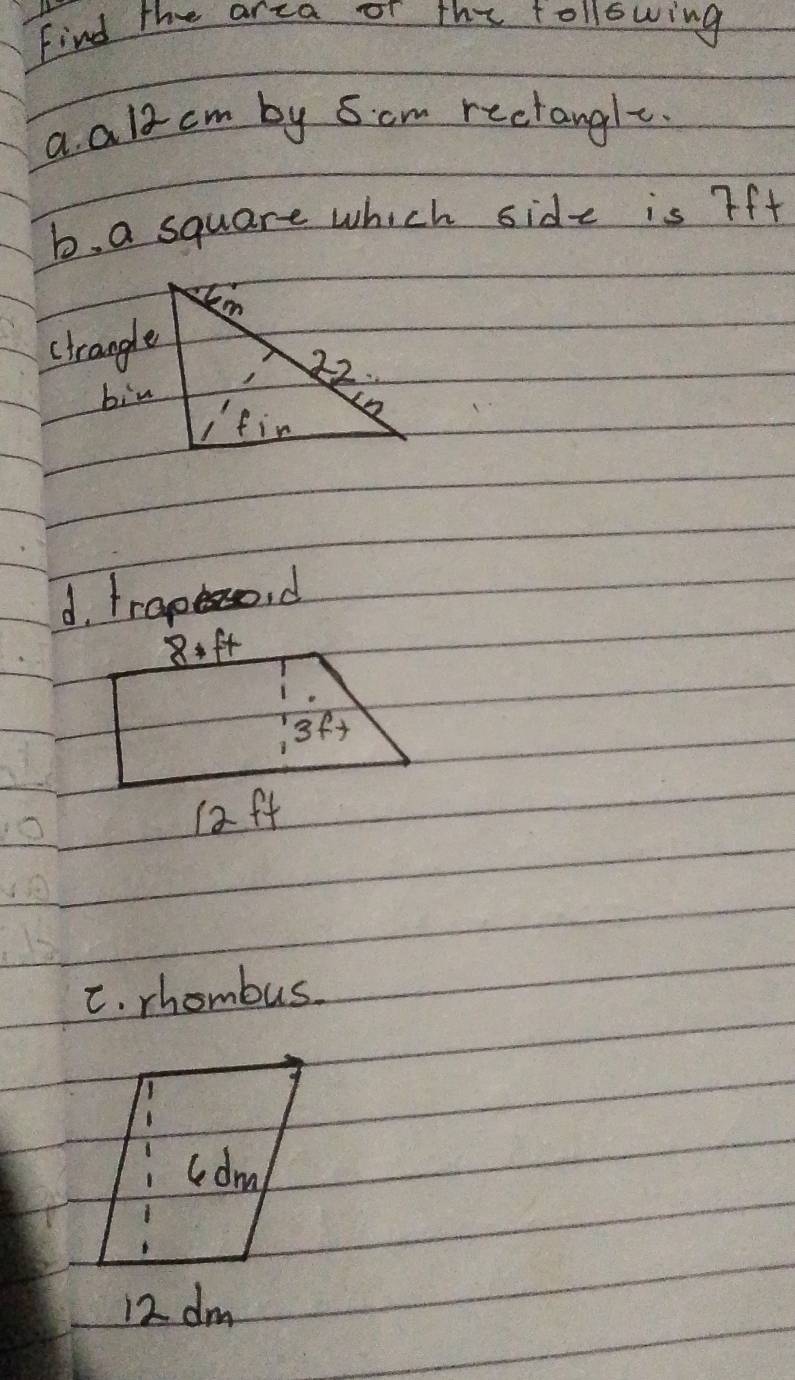 Find the area of the following
a. a 12 cm by 5 cm rectangle.
b. a square which side is 7ft
c trangle
22 in
bin
fin
d. trapezoid
8 ft
3ft
12 ft
e. rhombus.
6dm
12 dm